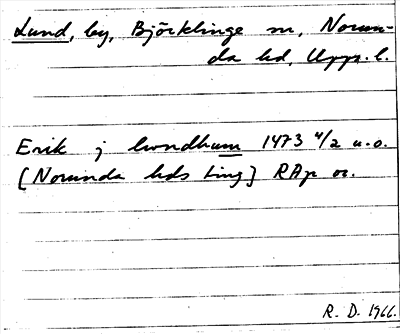 Lund, by, Björklinge sn, Norun-
da hd, Upps. l.
Erik j lwndhum 1473 4/2 u.o.
[Norunda hds ting] RAp or.
R. D. 1966.